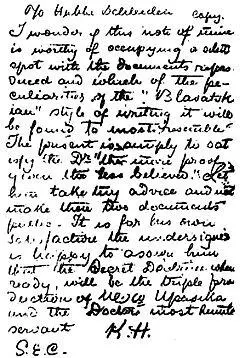 To Hubbe Schleiden
Copy.
I wonder if this note of mine
is worthy of occupying a select
spot with the documents repro-
duced and which of the pe-
culiarities of the "Blavatsk
ian" style of writing it will
be found to most resemble
The present is simply to sat
isfy the Dr "the more proof
given the less believed". Let
him take my advice and not
make these two documents
public. It is for his own
satisfaction the undersigned
is happy to assure him
that the Secret Doctrine when
ready, will be the triple pro
duction of Upasika
and the Doctor's most humble
servant K.H.
S.E.C.